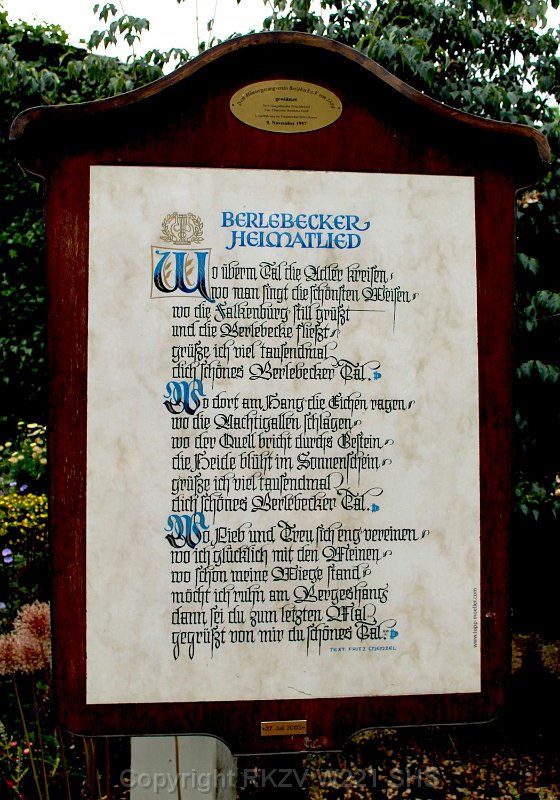 gewidmet
9. November 1997
BERLEBECKER
HEIMATLIED
Wo überm Tal die Adler kreisen,
wo man singt die schönsten Weisen,
wo die Falkenburg still grüßt
und die Berlebecke fließt,
grüße ich viel tausendmal
dich schönes Berlebecker Tal.
Wo dort am Hang die Eichen ragen,
wo die Nachtigallen schlagen,
wo der Quell bricht durchs Gestein,
die Heide blüht im Sonnenschein,
grüße ich viel tausendmal
dich schönes Berlebecker Tal.
Wo Lieb und Treu sich eng vereinen,
wo ich glücklich mit den Meinen,
wo schon meine Wiege stand,
möcht ich ruhn am Bergeshang
dann sei du zum letzten Mal
gegrüßt von mir du schönes Tal.
TEXT: FRITZ MENZEL
27. Juli 2003
Copyright FKZV W221 SHS